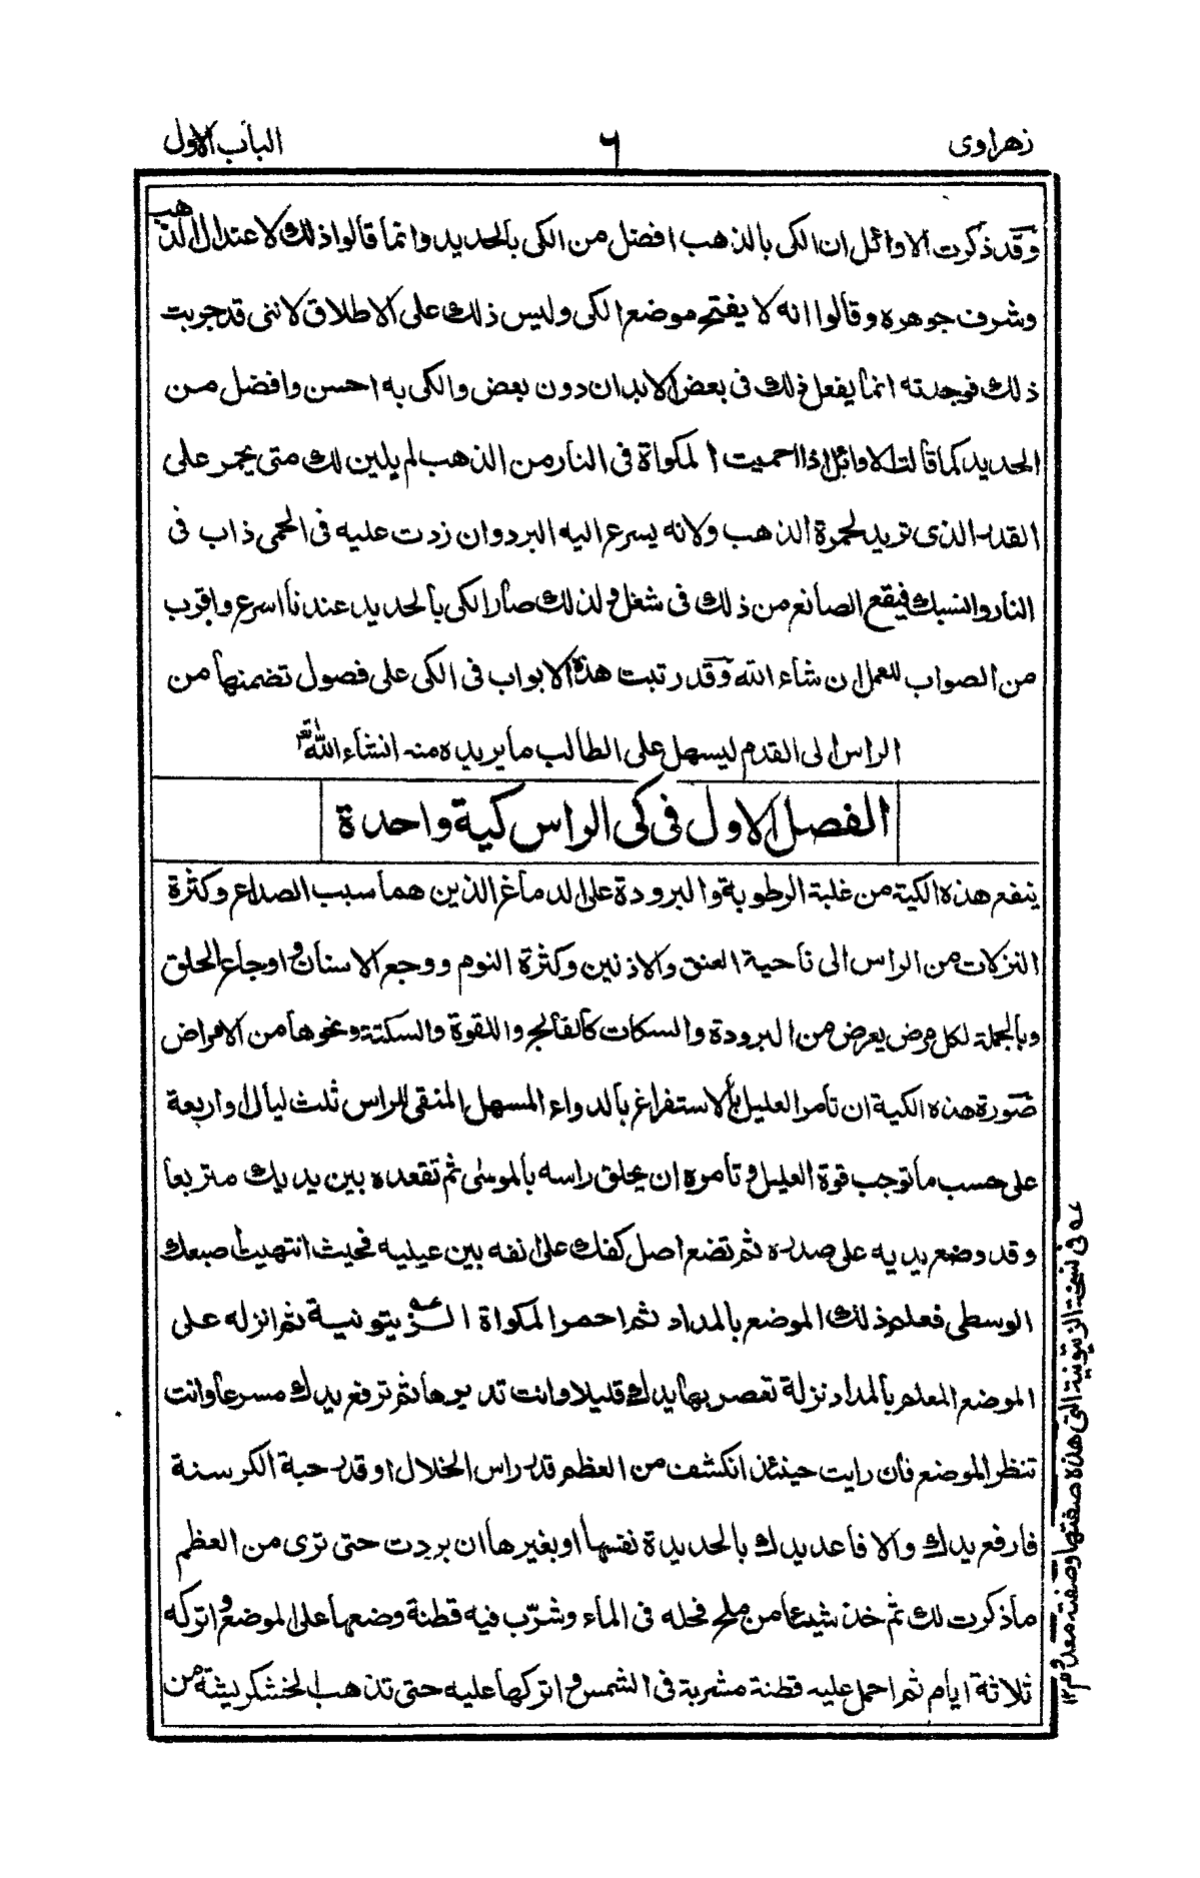 زهراوى ٦ الباب الاول
وقد ذكرت الاوائل ان الكى بالذهب افضل من الكى بالحديد وانما قالوا ذلك لاعتدال الذهب
وشرف جوهره وقالوا انه لا يفتح موضع الكى وليس ذلك على الاطلاق لاننى قد جربت
ذلك فوجدته انما يفعل ذلك فى بعض الابدان دون بعض والكى به احسن وافضل من
الحديد كما قالت الاوائل اذا احميت المكواة فى النار من الذهب لم يلين لك متى يحمر على
القدر الذى تريد لحمرة الذهب ولانه يسرع اليه البرد وان زدت عليه فى الحمى ذاب فى
النار وانسبك فيقع الصانع من ذلك فى شغل ولذلك صار الكى بالحديد عندنا اسرع واقرب
من الصواب للعمل ان شاء الله وقد رتبت هذه الابواب فى الكى على فصول تضمنها من
الراس الى القدم ليسهل على الطالب ما يريده منه انشاء الله تعر
الفصل الاول فى كى الراس كية واحدة
ينفع هذه الكية من غلبة الرطوبة والبرودة على الدماغ الذين هما سبب الصداع وكثرة
النزلات من الراس الى ناحية العنق والاذنين وكثرة النوم ووجع الاسنان واوجاع الحلق
وبالجملة لكل مرض يعرض من البرودة والسكات كالفالج واللقوة والسكتة ونحوها من الامراض
صورة هذه الكية ان تامر العليل بالاستفراغ بالدواء المسهل المنقى للراس ثلث ليال او اربعة
على حسب ما توجب قوة العليل و تامره ان يحلق راسه بالموسى ثم تقعده بين يديك متربعا
وقد وضع يديه على صدره ثم تضع اصل كفك على انفه بين عينيه فحيث انتهيت اصبعك
الوسطى فعلم ذلك الموضع بالمداد ثم احمر المكواة الزيتونية عه ثم انزله على
الموضع المعلم بالمداد نزلة تعصر بها يدك قليلا وانت تديرها ثم ترفع يدك مسرعا وانت
تنظر الموضع فان رايت حينئذ انكشف من العظم قدر راس الخلال او قدر حبة الكرسنة
فارفع يدك والا فاعد يدك بالحديدة نفسها او بغيرها ان بردت حتى ترى من العظم
ما ذكرت لك ثم خذ شيئا من ملح فحله فى الماء وشرّب فيه قطنة وضعها على الموضع و اتركه
ثلاثة ايام ثم احمل عليه قطنة مشربة فى الشمس و اتركها عليه حتى تذهب الخشكريشة من
عه فى نسخة الزيتونية التى هذه صفتها وصفته معدوم ١٢